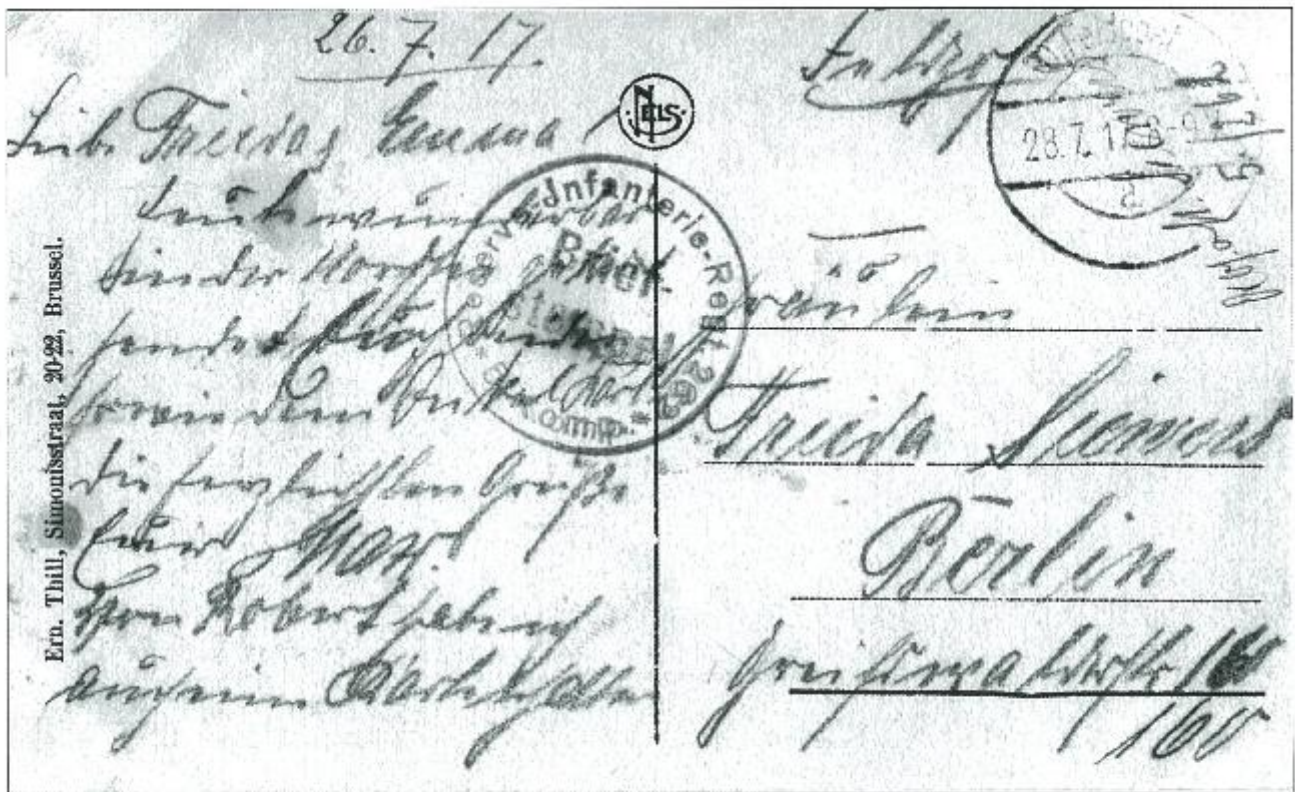 26. 7. 17.
Liebe Frieda, Emma!
wunderbar
in der Nordsee
sendet Euch beiden
sowie dem Onkel
die herzlichsten Grüße
Euer Max.
Von Robert habe ich
auch eine Karte erhalten
Ern. Thill, Simonisstraat, 20-22, Brussel.
NELS
Reserve-Infanterie-Regt. 262
Brief-
stempel
* Komp. *
Feldpost
28.7.17. 8-9
Fräulein
Frieda Siemers
Berlin
Greifswalderstr. 160
160